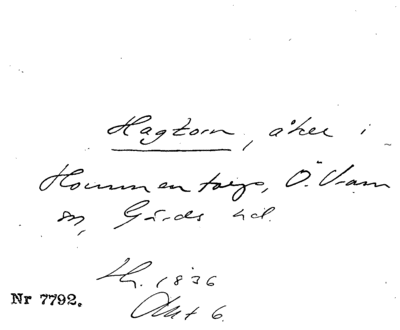 Hagtorn, åker i
Hommentorp, Ö. Vram
sn, Gärds hd.
Lh. 1836
Akt 6.
Nr 7792.